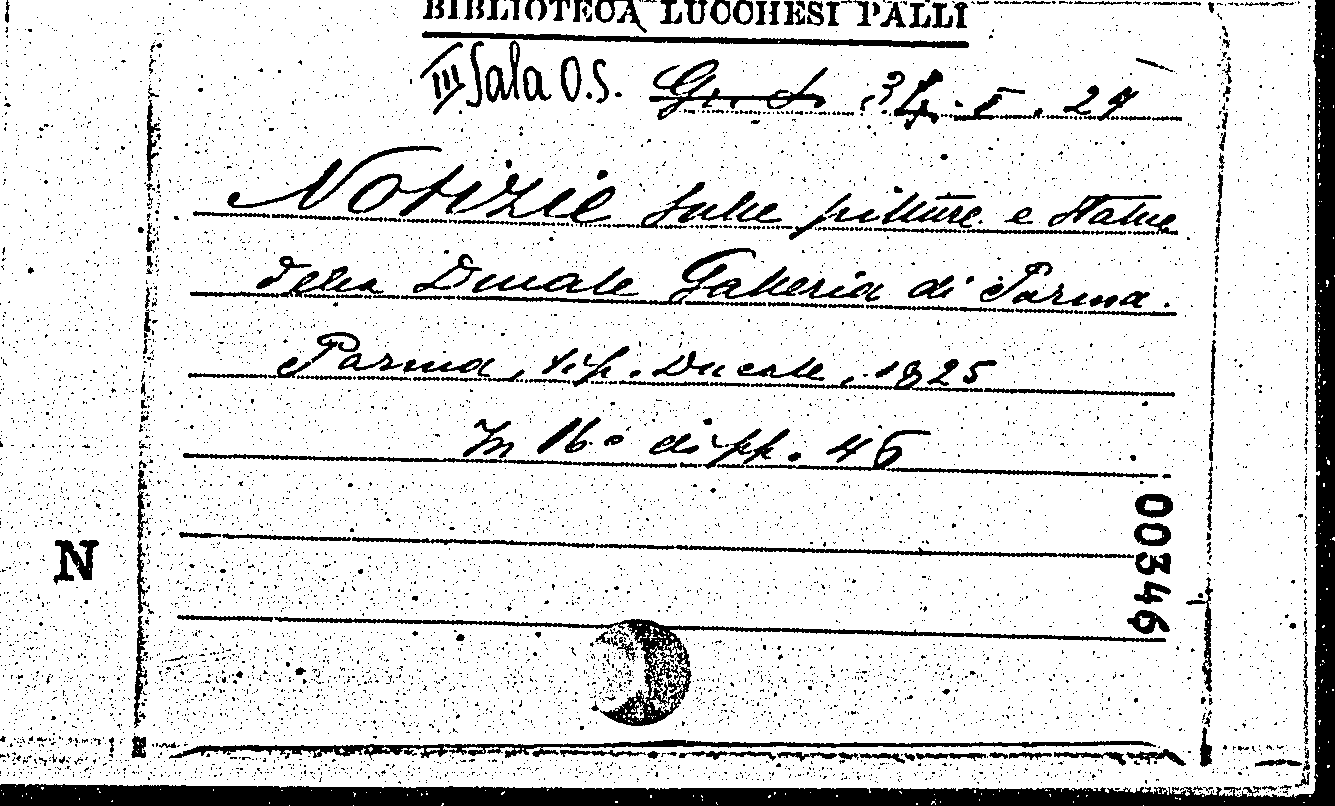 BIBLIOTECA LUCCHESI PALLI
III Sala O.S.
Notizie sulle pitture e statue
della Ducale Galleria di Parma.
Parma, tip. Ducale, 1825
In 16° di pp. 46
00346
N